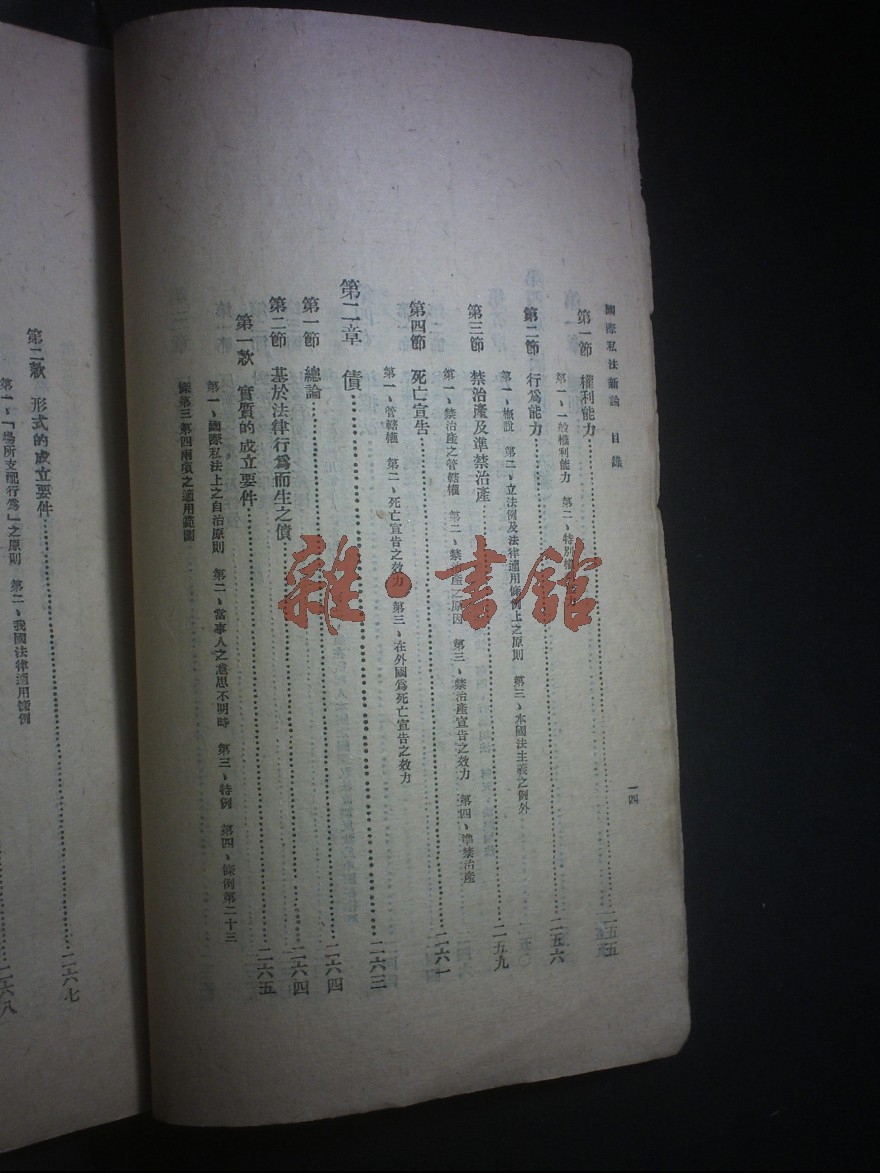 國際私法新論 目錄
一四
第一節 權利能力 二五五
第一、一般權利能力 第二、特別權
第二節 行爲能力 二五六
第一、概說 第二、立法例及法律適用條例上之原則 第三、本國法主義之例外
第三節 禁治產及準禁治產 二五九
第一、禁治產之管轄權 第二、禁治產之原因 第三、禁治產宣告之效力 第四、準禁治產
第四節 死亡宣告 二六一
第一、管轄權 第二、死亡宣告之效力 第三、在外國爲死亡宣告之效力
第二章 債 二六三
第一節 總論 二六四
第二節 基於法律行爲而生之債 二六四
第一款 實質的成立要件 二六五
第一、國際私法上之自治原則 第二、當事人之意思不明時 第三、特例 第四、條例第二十三
條第三第四兩項之適用範圍
第二款 形式的成立要件 二六七
第一、「場所支配行爲」之原則 第二、我國法律適用條例
二六八
雜·書館